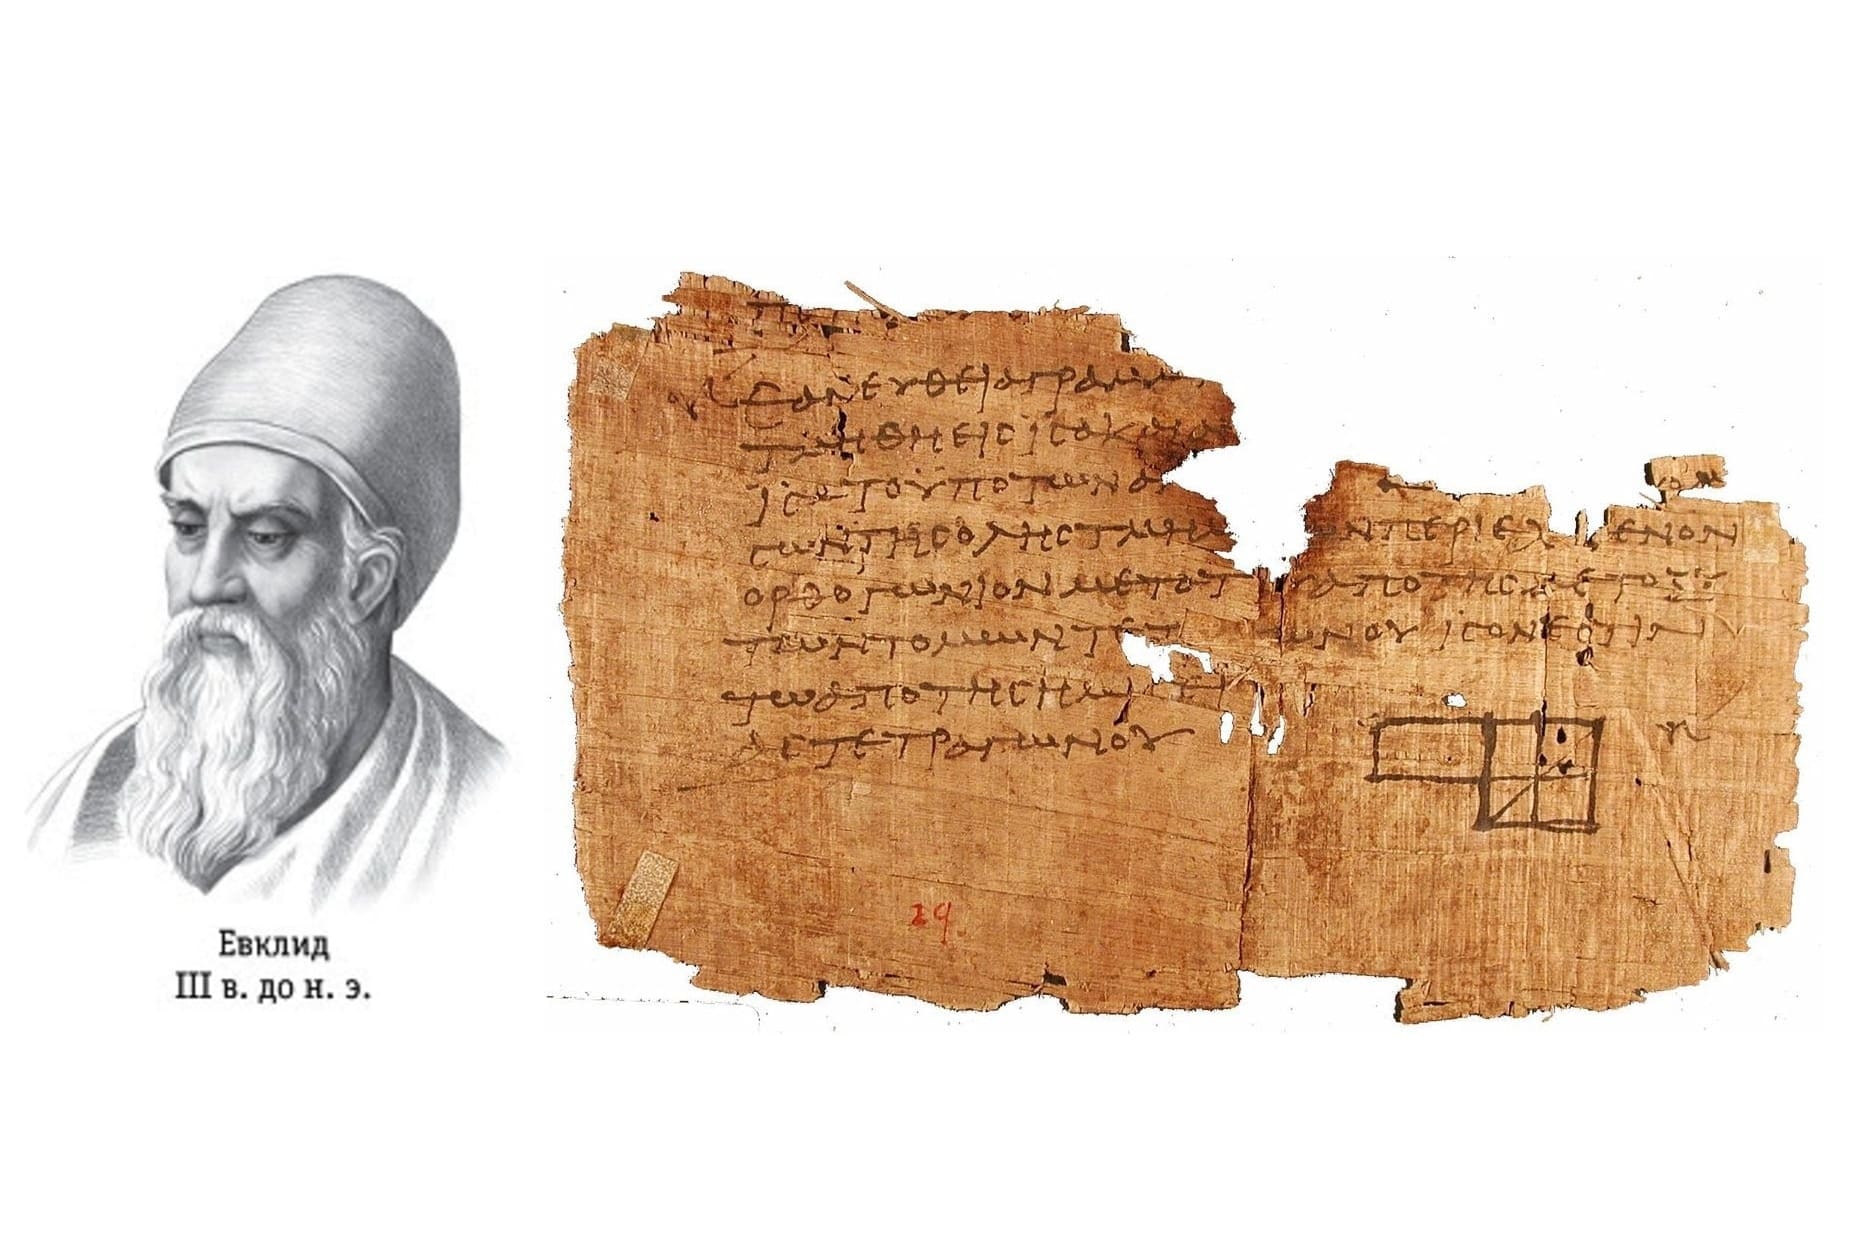 Евклид
III в. до н. э.
ΕΑΝΕΥΘΕΙΑΓΡΑΜΜ
ΤΜΗΘΗΕΙCΙCΑΚΑΙΑ
ΙCΑΤΟΫΠΟΤΩΝΑ
CΩΝΤΗCΟΛΗCΤΜΗΜ ΩΝΠΕΡΙΕΧ ΕΝΟΝ
ΟΡΘΟΓΩΝΙΟΝΜΕΤΟΤ ΑΠΟΤΗCΜΕΤΟΞΥ
ΤΩΝΤΟΜΩΝΤΕΤ ΩΝΟΥ ΙCΟΝΕCΤΙΝ
ΤΩΑΠΟΤΗCΗΜΙCΕΙ
ΑCΤΕΤΡΑΓΩΝΟΥ
29